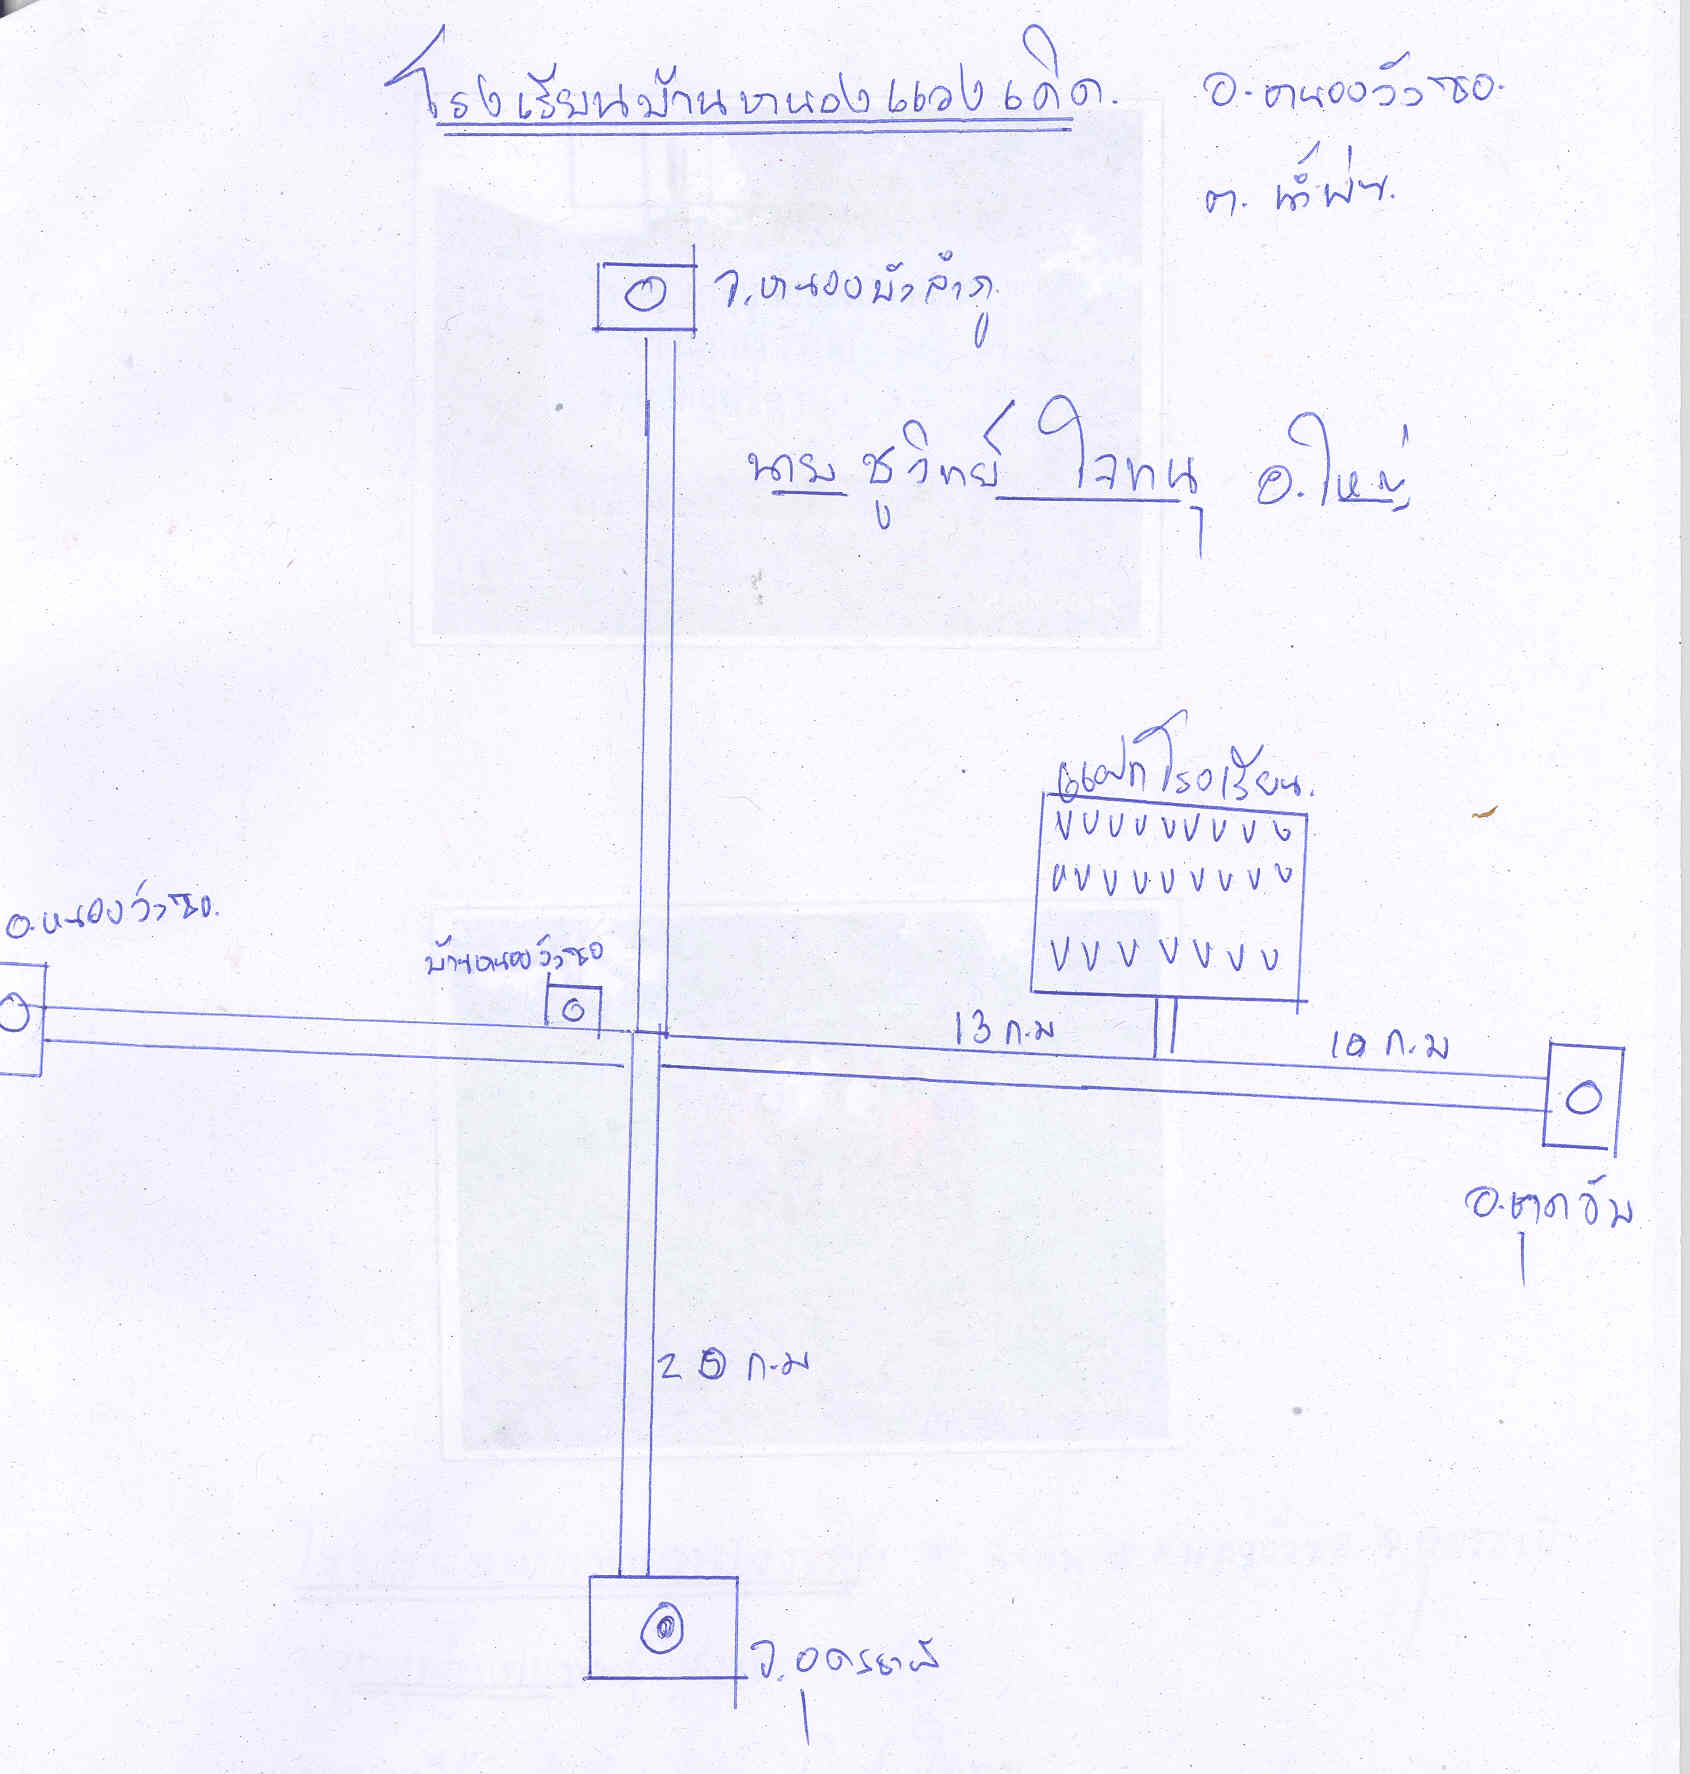 โรงเรียนบ้านหนองแวงเค็ด.
อ.หนองวัวซอ.
ต. น้ำพ่น.
จ.หนองบัวลำภู.
นาย ชูวิทย์ ใจทนุ อ.ใหญ่
แฝกโรงเรียน.
อ.หนองวัวซอ.
บ้านหนองวัวซอ
13 ก.ม
10 ก.ม
อ.กุดจับ
20 ก.ม
จ.อุดรธานี